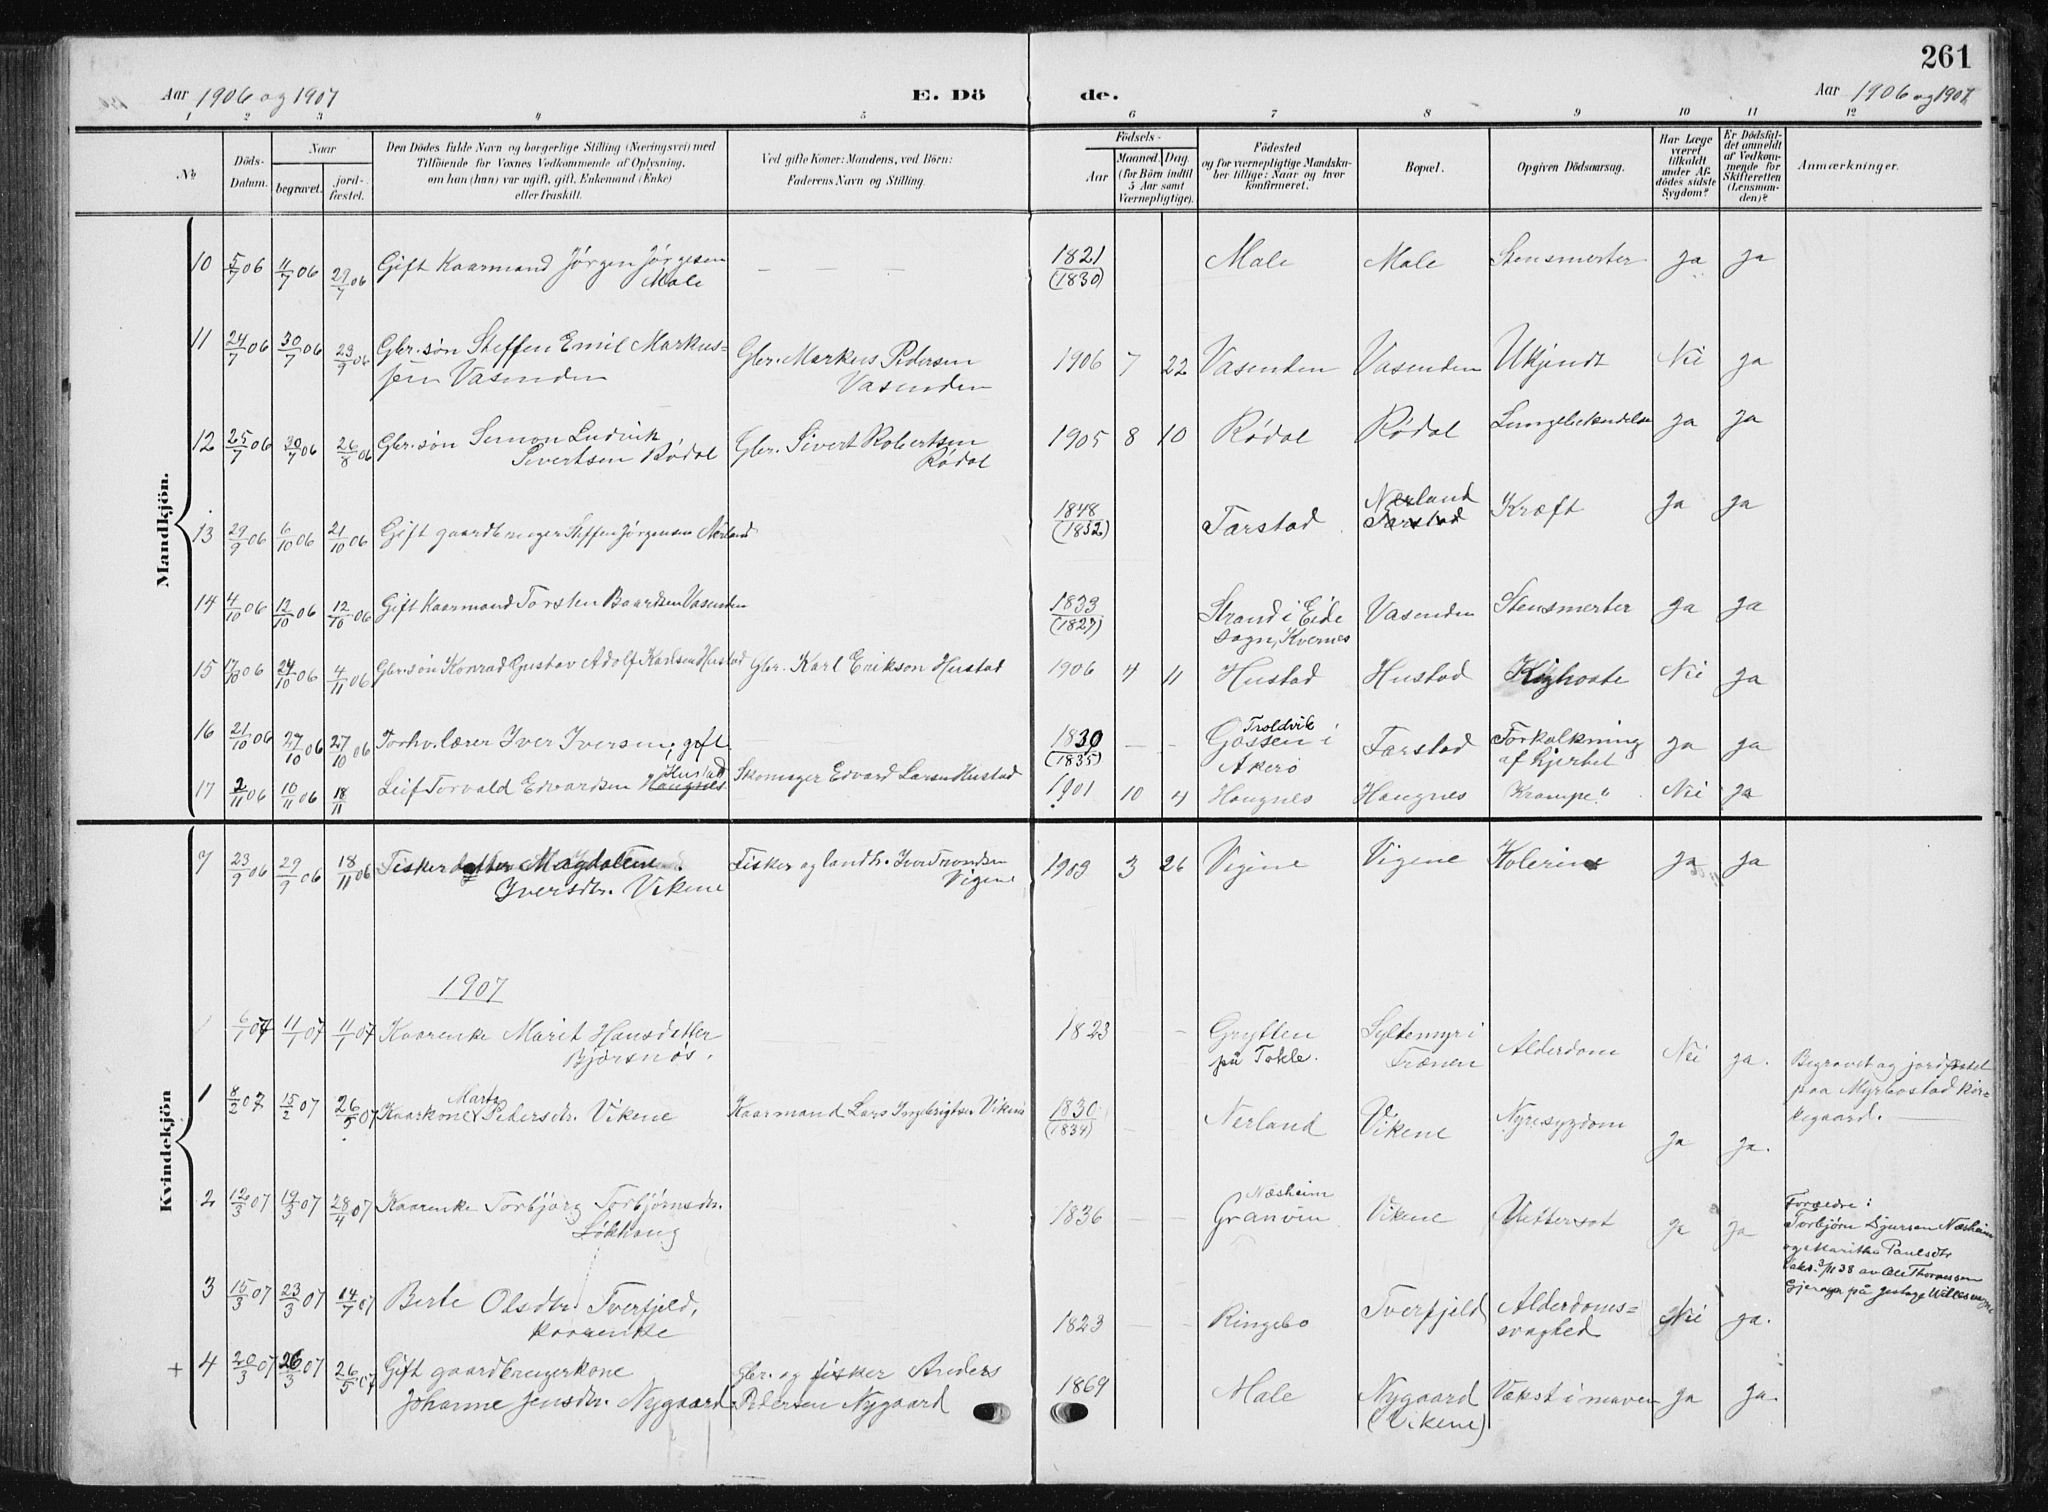 261
Aar 1906 og 1907
E. Dö
de.
Aar 1906 og 1907
1 2 3 4 5 6 7 8 9 10 11 12
No
Döds-
Datum.
Naar
begravet.
jord-
fæstet.
Den Dödes fulde Navn og borgerlige Stilling (Næringsvei) med
Tilföiende for Voxnes Vedkommende af Oplysning,
om han (hun) var ugift, gift, Enkemand (Enke)
eller fraskilt.
Ved gifte Koner: Mandens, ved Börn:
Faderens Navn og Stilling.
Födsels-
Aar
Maaned. Dag.
(for Börn indtil
5 Aar samt
Værnepligtige).
Födested
og for værnepligtige Mandska-
ber tillige: Naar og hvor
konfirmeret.
Bopæl.
Opgiven Dödsaarsag.
Har Læge
været
tilkaldt
under Af-
dödes sidste
Sygdom?
Er Dödsfal-
det anmeldt
af Vedkom-
mende for
Skifteretten
(Lensman-
den)?
Anmærkninger.
Mandkjön.
10 5/7 06 11/7 06 29/7 06 Gift Kaarmand Jørgen Jørgesen Male — — — 1821 (1830) Male Male Stensmerter ja ja
11 24/7 06 30/7 06 23/9 06 Gbr.søn Steffen Emil Markus-
sen Vasenden Gbr. Markus Pedersen Vasenden 1906 7 22 Vasenden Vasenden Ukjendt Nei ja
12 25/7 06 30/7 06 26/8 06 Gbr.søn Simon Ludvik
Sivertsen Rødal Gbr. Sivert Robertsen Rødal 1905 8 10 Rødal Rødal Lungebetændelse ja ja
13 29/9 06 6/10 06 21/10 06 Gift gaardbruger Steffen Jørgensen Nerland 1848 (1852) Tarstad Nerland Tarstad Kræft ja ja
14 4/10 06 12/10 06 12/10 06 Gift Kaarmand Torsten Baardsen Vasenden 1833 (1827) Strand i Eide
sogn, Kvernes Vasenden Stensmerter ja ja
15 17/10 06 24/10 06 4/11 06 Gbr.søn Konrad Gustav Adolf Karlsen Hustad Gbr. Karl Erikson Hustad 1906 4 11 Hustad Hustad Kighoste Nei ja
16 21/10 06 27/10 06 27/10 06 Forhv. lærer Iver Iversen, gift 1830 (1835) — — Troldvik
Gossen i
Akerø Farstad Forkalkning
af hjertet ja ja
17 2/11 06 10/11 06 18/11 Leif Torvald Edvardsen Haugnes Hustad Skomager Edvard Larsen Hustad 1901 10 4 Haugnes Haugnes Krampe." Nei ja
Kvindekjön
7 23/9 06 29/9 06 18/11 06 Fiskerdatter Magdalene
Iversdtr. Vikene Fisker og landh. Iver Trondsen
Vigene 1903 3 26 Vigene Vigene Kolerine ja ja
1907
6/1 07 11/1 07 11/1 07 Kaarenke Marit Hansdatter
Bjørsnøs. 1823 — Grytten
på Tokle. Syltemyr i
Frænen Alderdom Nei ja. Begravet og jordfæstet
paa Myrbostad kir-
kegaard.
1 8/2 07 15/2 07 26/5 07 Kaarkone Marta Pedersdtr. Vikene Kaarmand Lars Ingebrigtsen Vikene 1830 (1834) — — Nerland Vikene Nyresygdom ja ja.
2 12/3 07 19/3 07 28/4 07 Kaarenke Torbjørg Torbjørnsdtr.
Løkhaug 1836 — — Næsheim
Granvin Vikene Vattersot ja ja Foreldre:
Torbjørn Sjursen Næsheim
og Marithe Paulsdtr
3/11 38 av Ole Thomessen
på
3 15/3 07 23/3 07 14/7 07 Berte Olsdtr. Tverfjeld,
kaarenke 1823 — — Ringebo Tverfjeld Alderdoms-
svaghed Nei ja.
+ 4 20/3 07 26/3 07 26/5 07 Gift gaardbrugerkone
Johanne Jensdtr. Nygaard Gbr. og fisker Anders
Pedersen Nygaard 1869 Male Nygaard
(Vikene) Vækst i maven ja ja.